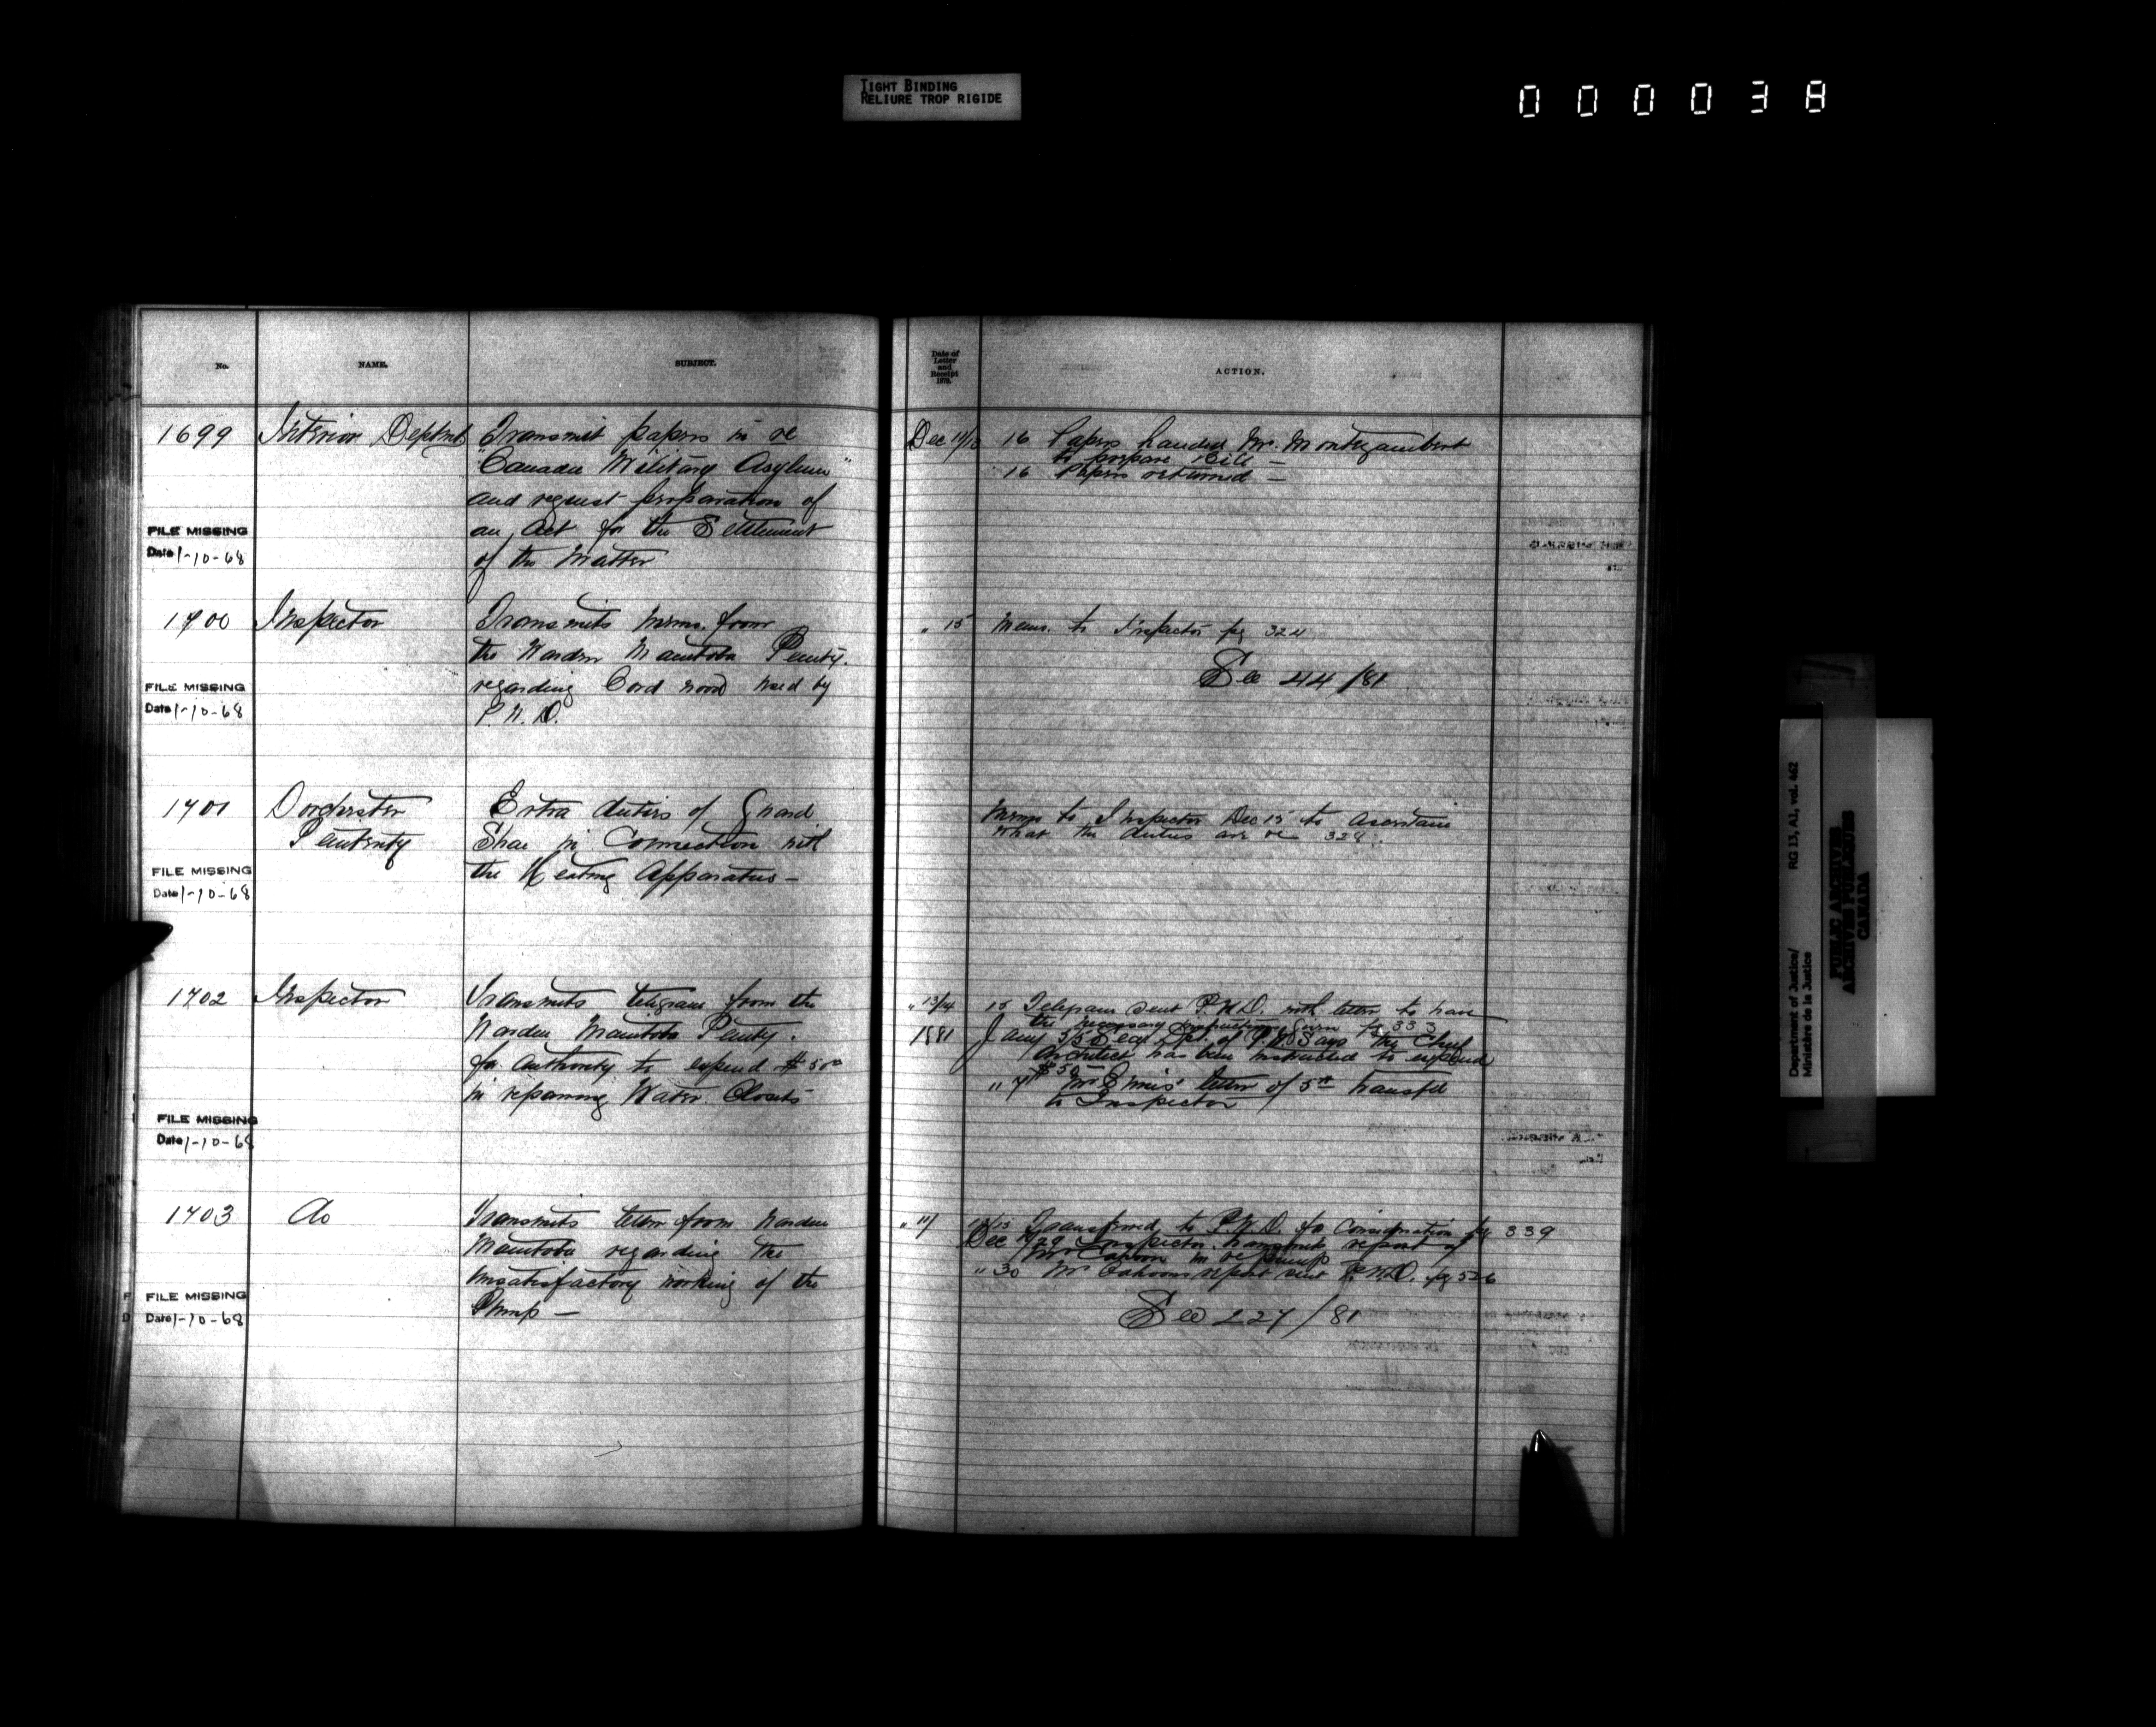 TIGHT BINDING
RELIURE TROP RIGIDE
000038
No.
NAME.
SUBJECT.
Date of
Letter
and
Receipt
1879.
ACTION.
1699
Interior Deptmt
Transmit papers in re
"Canada Military Asylum"
and request preparation of
an Act for the Settlement
of the Matter
FILE MISSING
Date 1-10-68
Dec
16 Papers handed Mr. Montizambert
to prepare Bill —
16 Papers returned —
1700
Inspector
Transmits memo. from
the Warden Manitoba Penity.
regarding Cord wood used by
P.W.D.
FILE MISSING
Date 1-10-68
" 15
Memo. to Inspector pg 324
See 44/81
1701
Dorchester
Penitenty
Extra duties of Guard
Shea in Connection with
the Heating Apparatus —
FILE MISSING
Date 1-10-68
Memo to Inspector Dec 15 to ascertain
what the duties are re 328
1702
Inspector
Transmits telegram from the
Warden Manitoba Penity.
for authority to expend $50
in repairing Water Closets
FILE MISSING
Date 1-10-68
" 13/14
15 Telegram sent P.W.D. with letter to have
the necessary instructions given pg 333
1881
Jany 5/5 Secr. Dpt. of P.W. Says the Chief
Architect has been instructed to expend
$50 —
" 7 Mr Ennis' letter of 5th transfd
to Inspector
1703
Do
Transmits letter from Warden
Manitoba regarding the
unsatisfactory working of the
Pump —
FILE MISSING
Date 1-10-68
" 11/
Transferred to P.W.D. for Consideration pg 339
Dec /29 Inspector transmits report of
Mr in re pump
" 30 Mr report sent P.W.D. pg 526
See 227/81
Department of Justice/
Ministère de la Justice
RG 13, A1, vol. 462
PUBLIC ARCHIVES
ARCHIVES PUBLIQUES
CANADA